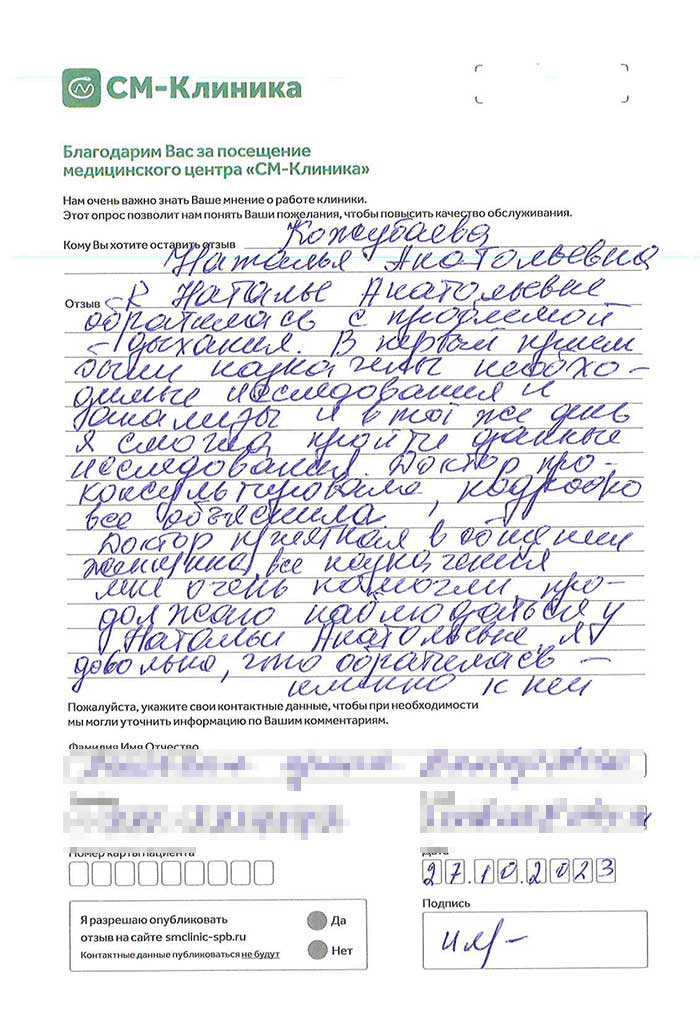 СМ-Клиника
Благодарим Вас за посещение
медицинского центра «СМ-Клиника»
Нам очень важно знать Ваше мнение о работе клиники.
Этот опрос позволит нам понять Ваши пожелания, чтобы повысить качество обслуживания.
Кому Вы хотите оставить отзыв Кожубаева
Наталья Анатольевна
Отзыв К Наталье Анатольевне
обратилась с проблемой
дыхания. В первый прием
были назначены необхо-
димые исследования и
анализы и в тот же день
я смогла пройти данные
исследования. Доктор про-
консультировала, подробно
все объяснила
Доктор приятная в общении
женщина, все назначения
мне очень помогли, про-
должаю наблюдаться у
Натальи Анатольевне, я
довольна, что обратилась -
именно к ней
Пожалуйста, укажите свои контактные данные, чтобы при необходимости
мы могли уточнить информацию по Вашим комментариям.
Фамилия Имя Отчество
Номер карты пациента
Дата
27.10.2023
Я разрешаю опубликовать
отзыв на сайте smclinic-spb.ru
Контактные данные публиковаться не будут
Да
Нет
Подпись